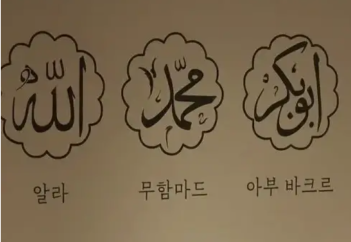 الله محمد ابوبكر
알라 무함마드 아부 바크르